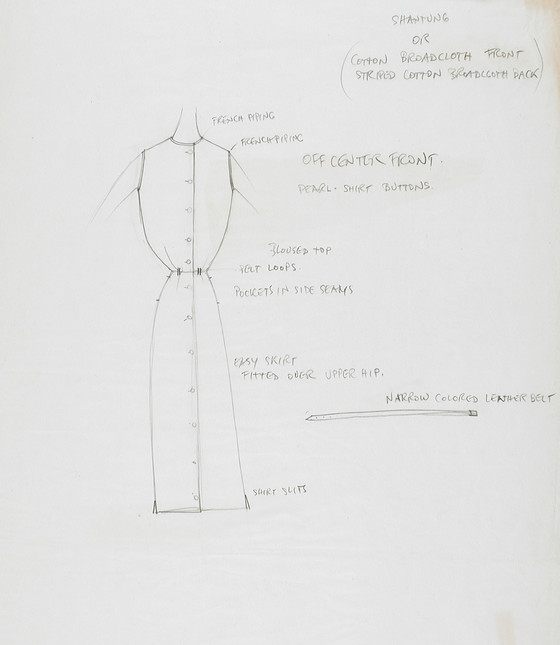 SHANTUNG
OR
(COTTON BROADCLOTH FRONT
STRIPED COTTON BROADCLOTH BACK)
FRENCH PIPING
FRENCH PIPING
OFF CENTER FRONT.
PEARL - SHIRT BUTTONS.
BLOUSED TOP
BELT LOOPS.
POCKETS IN SIDE SEAMS
EASY SKIRT
FITTED OVER UPPER HIP.
NARROW COLORED LEATHER BELT
SHIRT SLITS